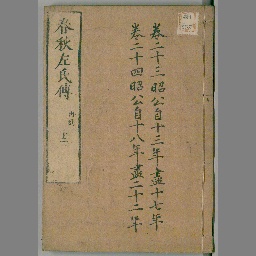 卷二十三昭公自十三年盡十七年
卷二十四昭公自十八年盡二十二年
春秋左氏傳